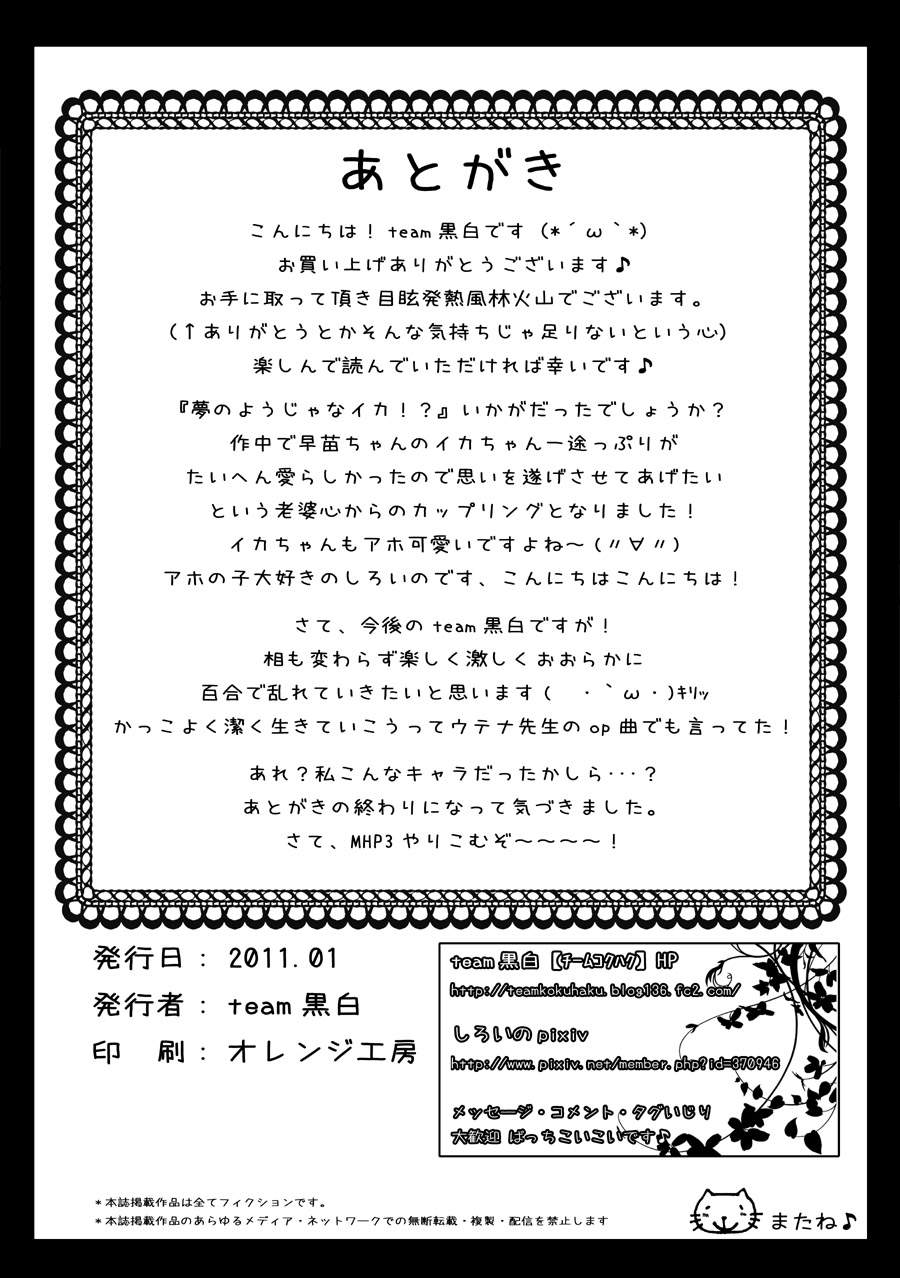 あとがき
こんにちは！ team 黒白です (*´ω｀*)
お買い上げありがとうございます♪
お手に取って頂き目眩発熱風林火山でございます。
(↑ありがとうとかそんな気持ちじゃ足りないという心)
楽しんで読んでいただければ幸いです♪
『夢のようじゃなイカ！？』いかがだったでしょうか？
作中で早苗ちゃんのイカちゃん一途っぷりが
たいへん愛らしかったので思いを遂げさせてあげたい
という老婆心からのカップリングとなりました！
イカちゃんもアホ可愛いですよね～(〃∀〃)
アホの子大好きのしろいのです、こんにちはこんにちは！
さて、今後の team 黒白ですが！
相も変わらず楽しく激しくおおらかに
百合で乱れていきたいと思います ( ・｀ω・)ｷﾘｯ
かっこよく潔く生きていこうってウテナ先生の op 曲でも言ってた！
あれ？私こんなキャラだったかしら･･･？
あとがきの終わりになって気づきました。
さて、MHP3 やりこむぞ～～～～！
発行日： 2011.01
発行者： team 黒白
印　刷： オレンジ工房
team 黒白【ﾁｰﾑｺｸﾊｸ】HP
http://teamkokuhaku.blog136.fc2.com/
しろいの pixiv
http://www.pixiv.net/member.php?id=370946
メッセージ・コメント・タグいじり
大歓迎 ばっちこいこいです♪
＊本誌掲載作品は全てフィクションです。
＊本誌掲載作品のあらゆるメディア・ネットワークでの無断転載・複製・配信を禁止します
またね♪